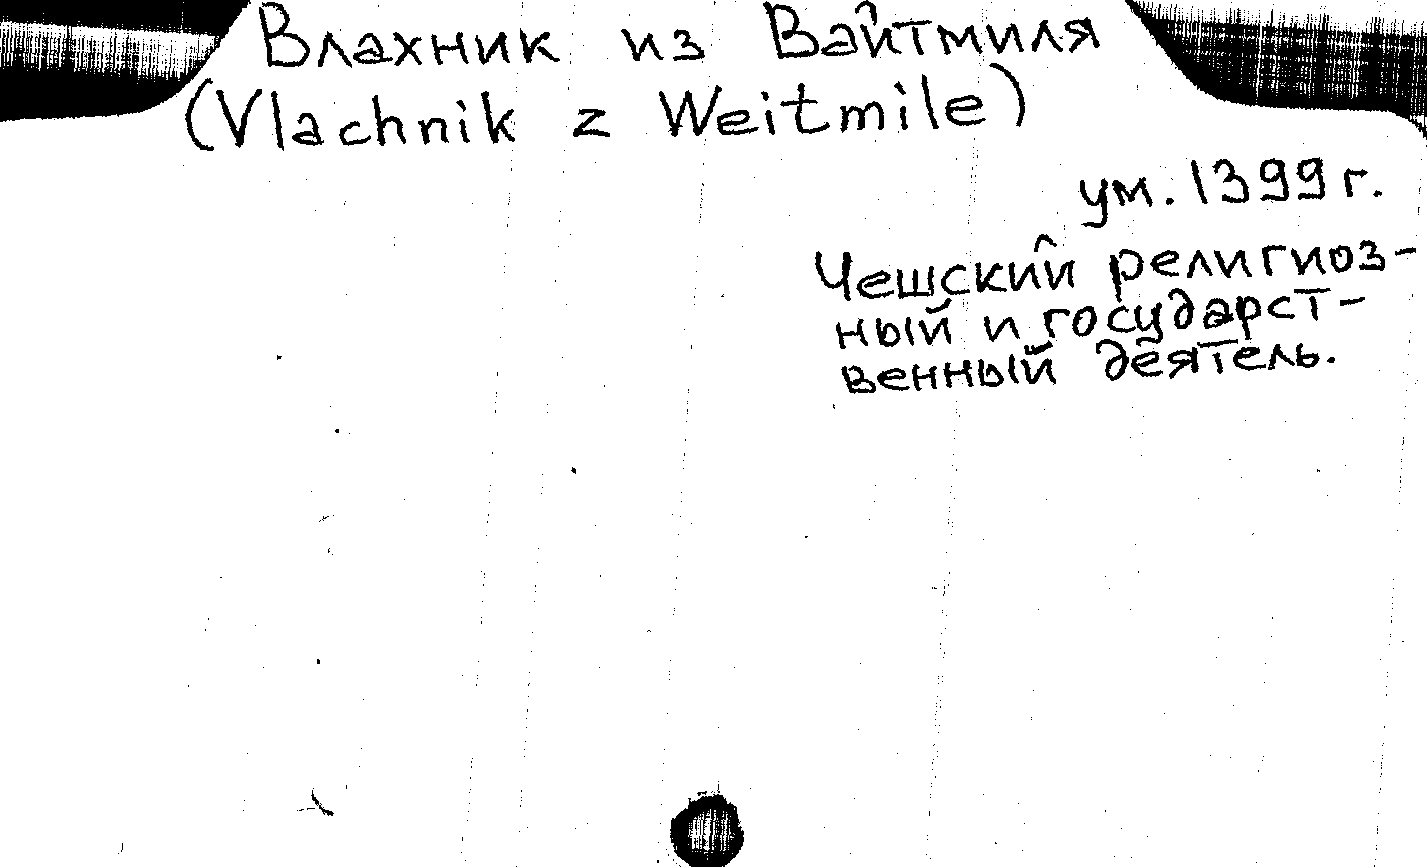 Влахник из Вайтмиля
(Vlachnik z Weitmile)
ум. 1399 г.
Чешский религиоз-
ный и государст-
венный деятель.